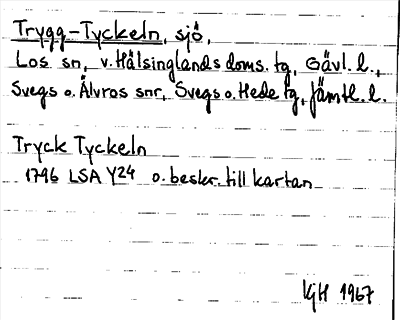 Trygg-Tyckeln, sjö,
Los sn, v. Hälsinglands doms. tg, Gävl. l.,
Svegs o. Älvros snr, Svegs o. Hede tg, Jämtl. l.
Tryck Tyckeln
1796 LSA Y24 o. beskr. till kartan
KGH 1967